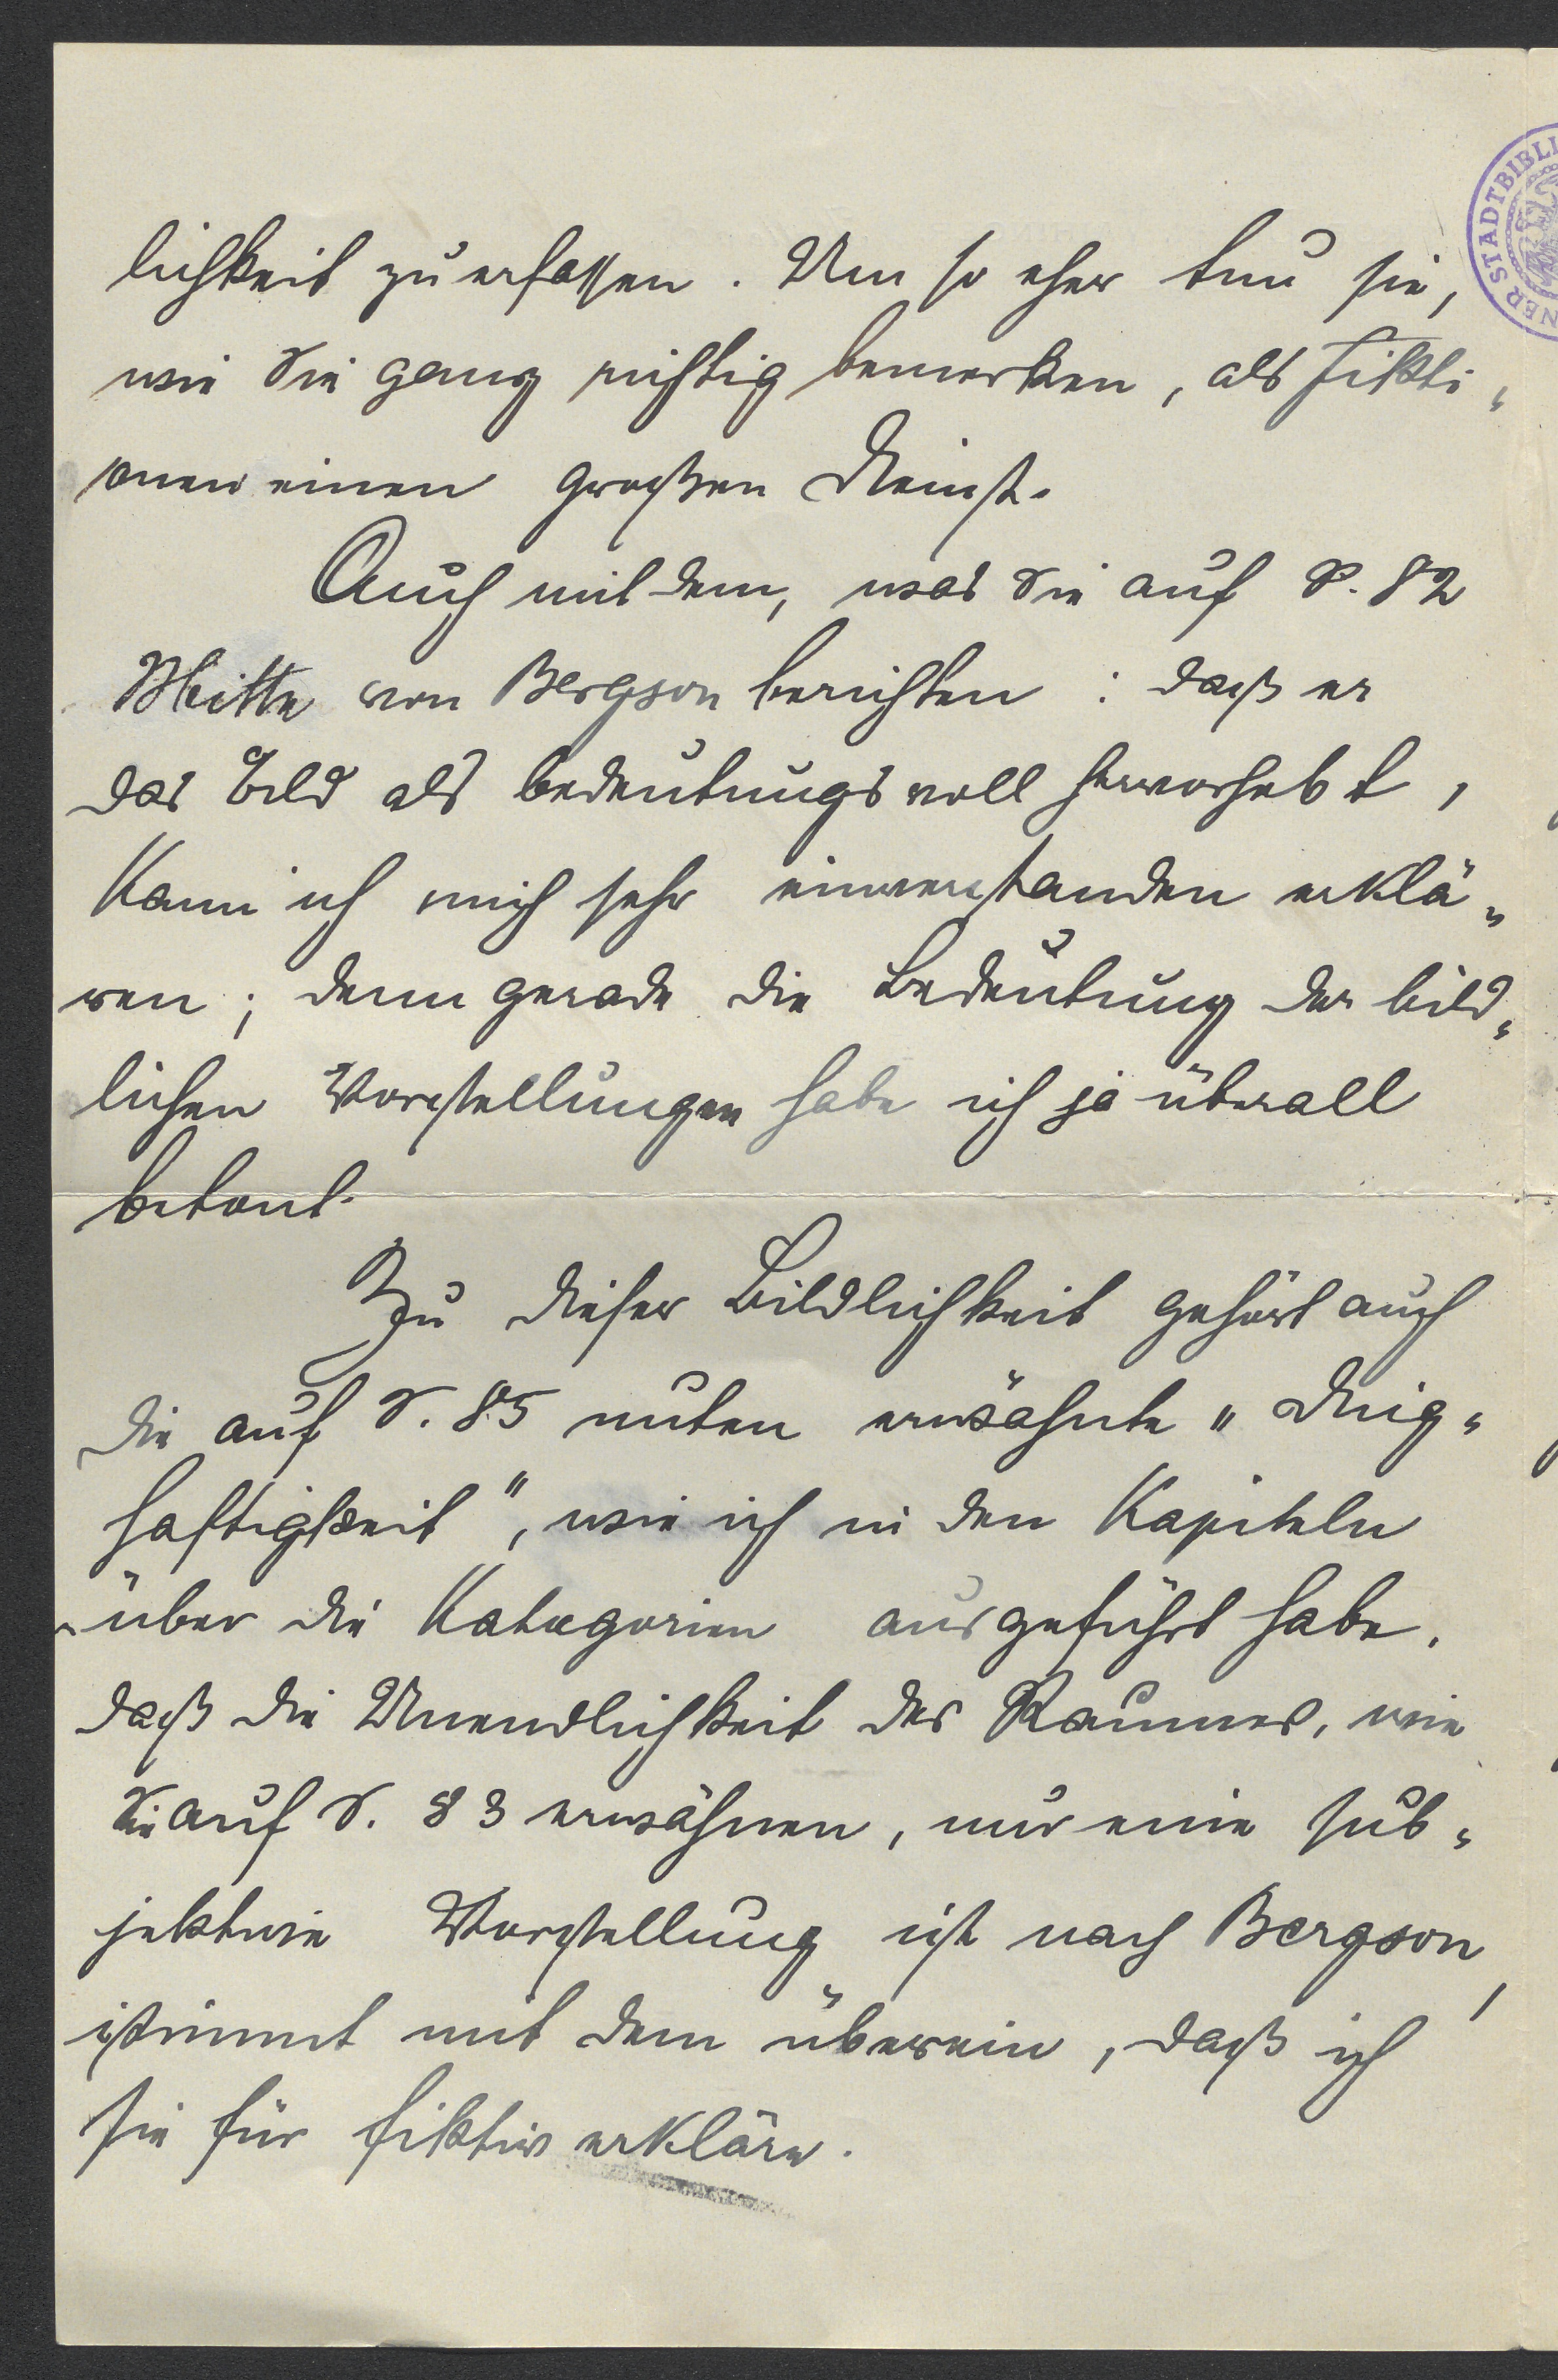 lichkeit zu erfassen. Um so eher tun sie,
wie Sie ganz richtig bemerken, als Fikti-
onen einen großen Dienst.
Auch mit dem, was Sie auf S. 82
Mitte von Bergson berichten: daß er
das Bild als bedeutungsvoll hervorhebt,
kann ich mich sehr einverstanden erklä-
ren; denn gerade die Bedeutung der bild-
lichen Vorstellungen habe ich ja überall
betont.
Zu dieser Bildlichkeit gehört auch
die auf S. 85 unten erwähnte „Ding-
haftigkeit", wie ich in den Kapiteln
über die Kategorien ausgeführt habe.
daß die Unendlichkeit des Raumes, wie
Sie auf S. 83 erwähnen, nur eine sub-
jektive Vorstellung ist nach Bergson,
stimmt mit dem überein, daß ich
sie für fiktiv erkläre.
NER STADTBIBLI